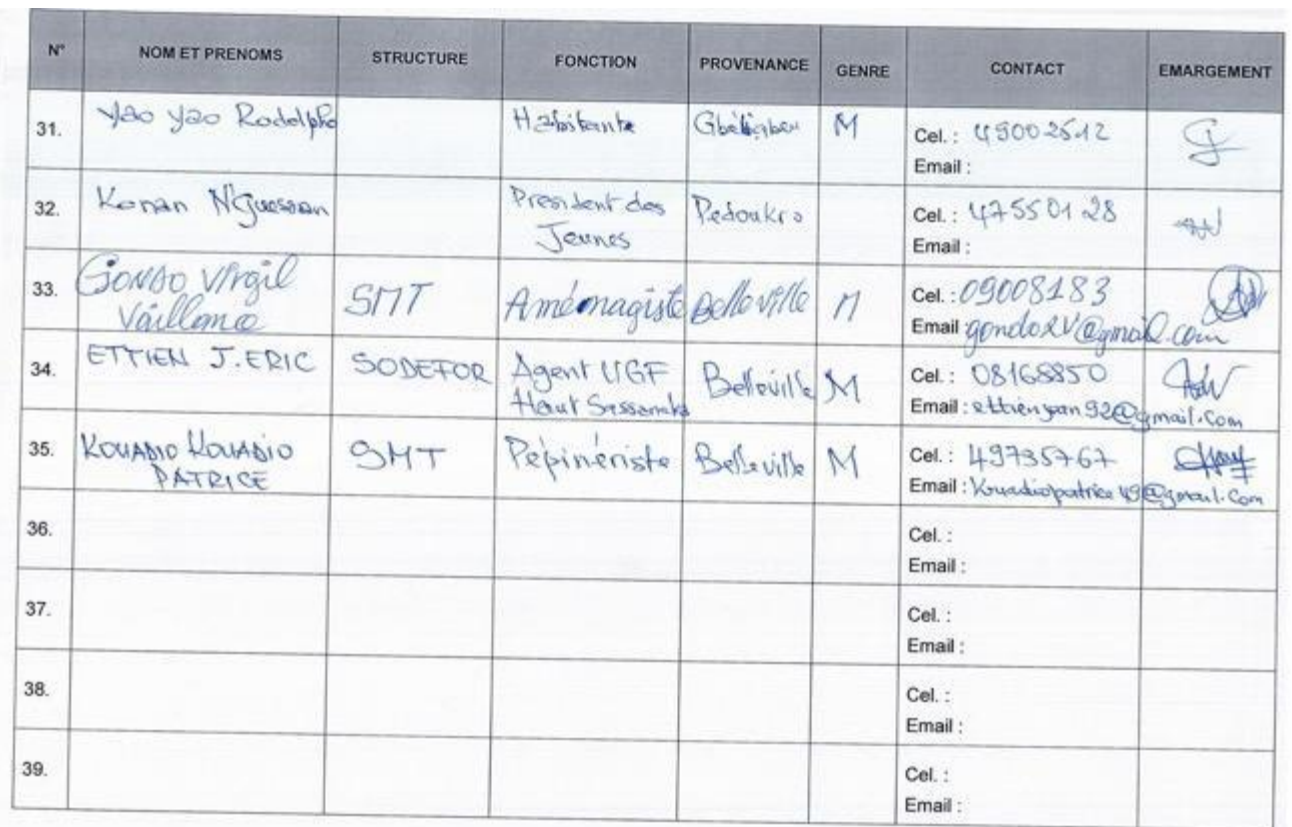 N° NOM ET PRENOMS STRUCTURE FONCTION PROVENANCE GENRE CONTACT EMARGEMENT
31. Yao Yao Rodolphe Habitante M Cel. : 49002512
Email :
32. Konan N'Guessan President des Pedoukro Cel. : 47550128
Jeunes Email :
33. GONDO Virgil SMT Aménagiste Belleville M Cel. : 09008183
Vaillance Email gondoRV@gmail.com
34. ETTIEN J. ERIC SODEFOR Agent UGF Belleville M Cel. : 08168850
Haut Sassandra Email : ettienyan92@gmail.com
35. KOUADIO KOUADIO SMT Pépinériste Belleville M Cel. : 49735767
PATRICE Email : Kouadiopatrice49@gmail.com
36. Cel. :
Email :
37. Cel. :
Email :
38. Cel. :
Email :
39. Cel. :
Email :